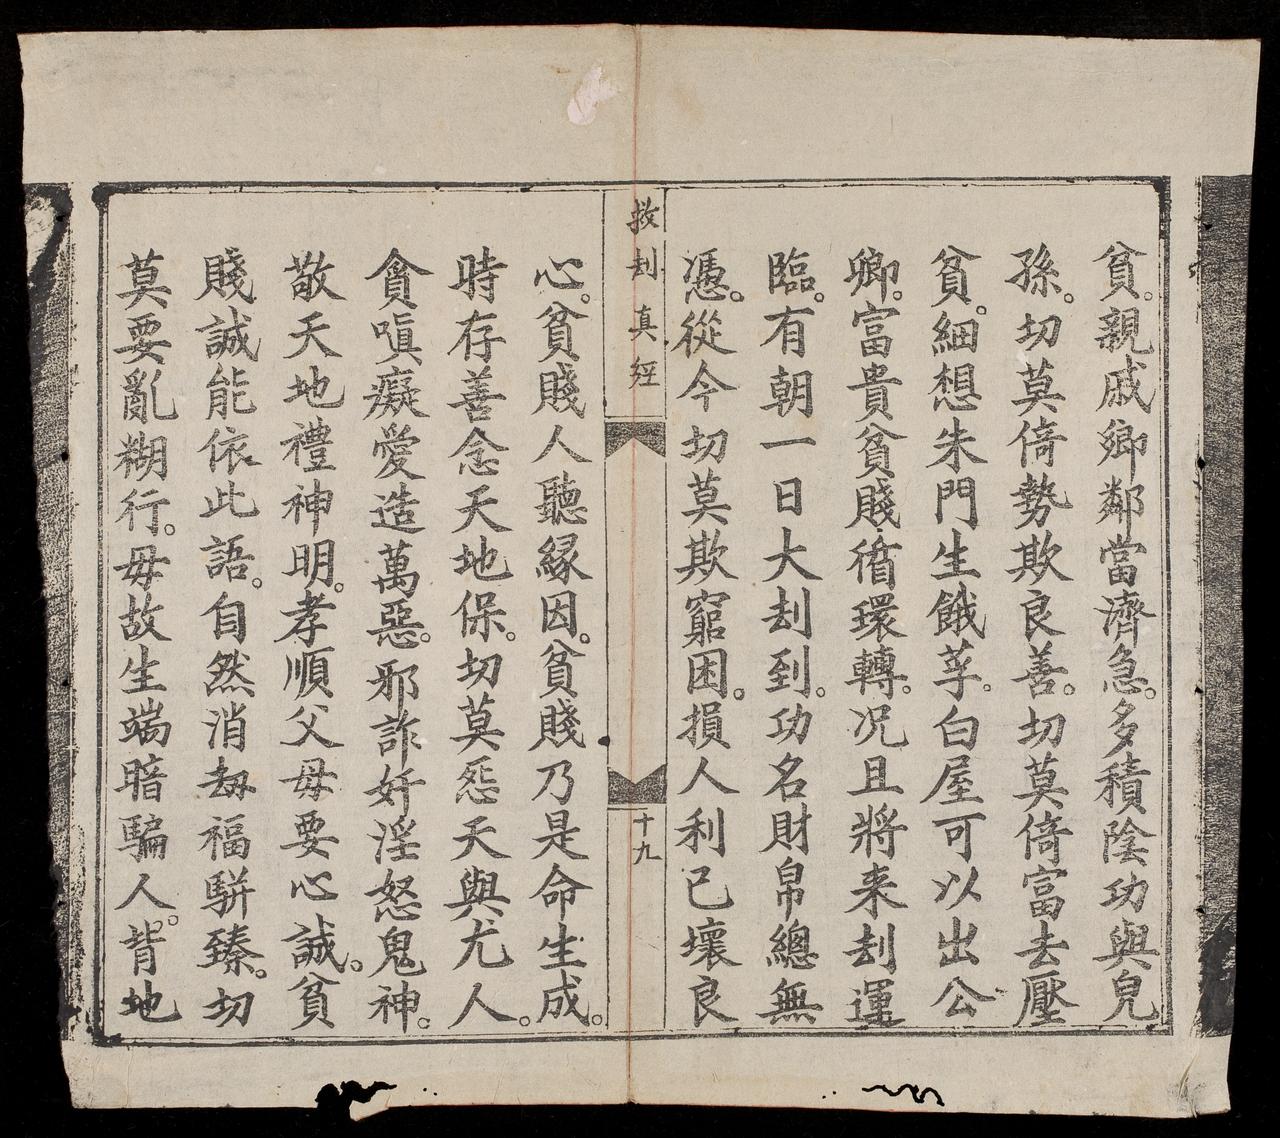 貧。親戚鄉鄰當濟急。多積陰功與兒
孫。切莫倚勢欺良善。切莫倚富去壓
貧。細想朱門生餓莩。白屋可以出公
卿。富貴貧賤循環轉。况且將来刦運
臨。有朝一日大刦到。功名財帛總無
憑。從今切莫欺窮困。損人利己壞良
救刦真經
十九
心。貧賤人聽緣因。貧賤乃是命生成。
時存善念天地保。切莫怨天與尤人。
貪嗔癡愛造萬惡。邪詐奸淫怒鬼神。
敬天地禮神明。孝順父母要心誠。貧
賤誠能依此語。自然消刼福駢臻。切
莫要亂糊行。毋故生端暗騙人。背地